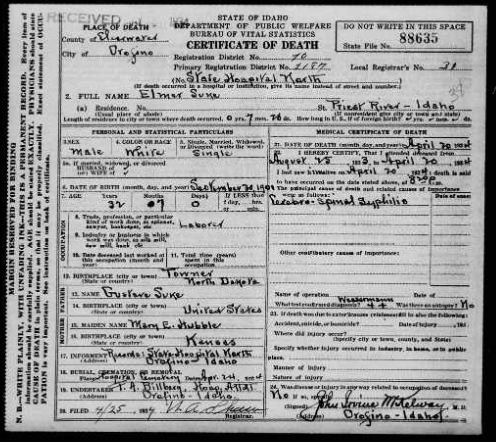 STATE OF IDAHO
DEPARTMENT OF PUBLIC WELFARE
BUREAU OF VITAL STATISTICS
CERTIFICATE OF DEATH
DO NOT WRITE IN THIS SPACE
88635
State File No.
RECEIVED
PLACE OF DEATH
County of Clearwater
City of Orofino
Registration District No. 70
Primary Registration District No. 2187 Local Registrar's No. 30
No. State Hospital North
(If death occurred in a hospital or institution, give its name instead of street and number.)
2. FULL NAME Elmer Suke
(a) Residence. No. St. Priest River - Idaho
(Usual place of abode) (If nonresident give city or town and state)
Length of residence in city or town where death occurred 0 yrs. 7 mos. 26 ds. How long in U. S., if of foreign birth? yrs. mos. ds.
PERSONAL AND STATISTICAL PARTICULARS
3. SEX 4. COLOR OR RACE 5. Single, Married, Widowed, or Divorced
Male White Single
5a. If married, widowed, or divorced
HUSBAND of
(or) WIFE of
6. DATE OF BIRTH (month, day, and year) September 20 1901
7. AGE Years Months Days If LESS than
32 07 0
OCCUPATION
8. Trade, profession, or particular kind of work done, as spinner, sawyer, bookkeeper, etc. Laborer
9. Industry or business in which work was done, as silk mill, saw mill, bank, etc.
10. Date deceased last worked at this occupation (month and year)
11. Total time (years) spent in this occupation
12. BIRTHPLACE (city or town) Towner
(State or country) North Dakota
FATHER
13. NAME Gustave Suke
14. BIRTHPLACE (city or town)
(State or country) United States
MOTHER
15. MAIDEN NAME Mary E. Hubble
16. BIRTHPLACE (city or town)
(State or country) Kansas
17. INFORMANT Records State Hospital North
Orofino - Idaho
18. BURIAL, CREMATION, OR REMOVAL
Hospital Cemetery Apr. 24
19. UNDERTAKER T. A. Billberg - Hosp. Attdt.
Orofino - Idaho.
20. FILED 4/25, 1934
Registrar.
MEDICAL CERTIFICATE OF DEATH
21. DATE OF DEATH (month, day, and year) April 20 1934
22. I HEREBY CERTIFY, That I attended deceased from
August 25 1933, to April 20, 1934
I last saw him alive on April 20
to have occurred on the date stated above, at
The principal cause of death and related causes of importance
Cerebro-Spinal Syphilis
Other contributory causes of importance:
Name of operation
What test confirmed diagnosis? Wassermann 4+ Was there an autopsy? No
23. If death was due to external causes (violence) fill in also the following:
Accident, suicide, or homicide? Date of injury
Where did injury occur?
(Specify city or town, county, and State)
Specify whether injury occurred in industry, in home, or in public place.
Manner of injury
Nature of injury
24. Was disease or injury in any way related to occupation of deceased?
No
(Signed) John Irwin McKelway M.D.
Orofino - Idaho.
MARGIN RESERVED FOR BINDING